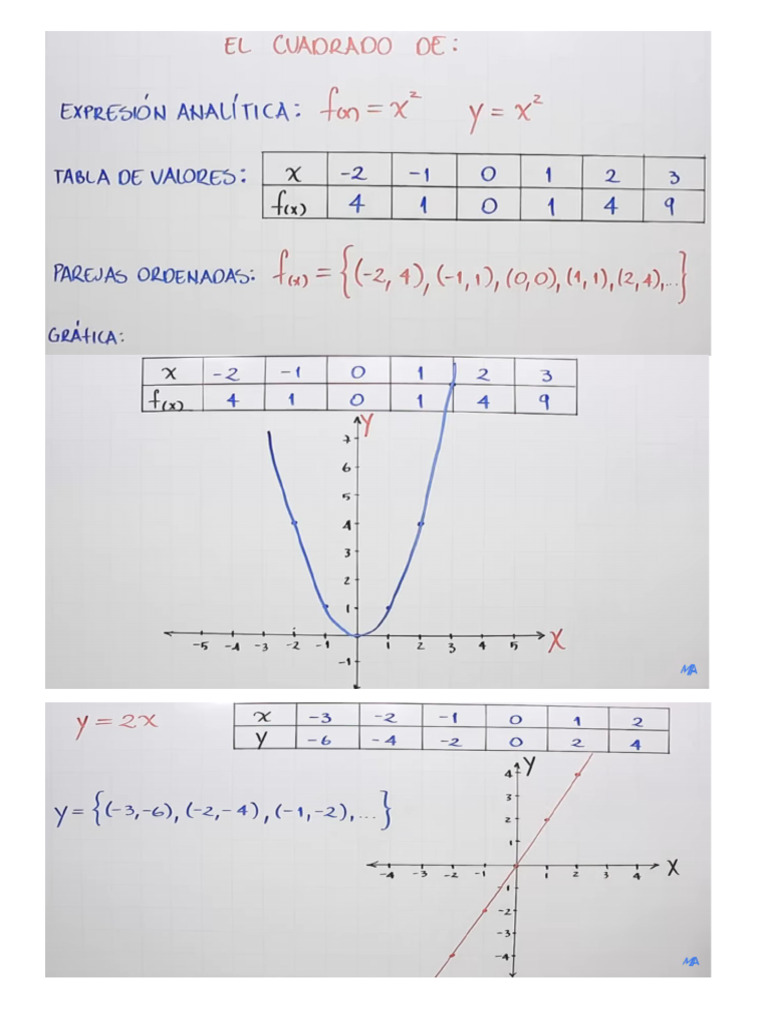 EL CUADRADO DE:
EXPRESIÓN ANALÍTICA: f(x) = x² y = x²
TABLA DE VALORES: x -2 -1 0 1 2 3
f(x) 4 1 0 1 4 9
PAREJAS ORDENADAS: f(x) = {(-2, 4), (-1, 1), (0,0), (1, 1), (2, 4),...}
GRÁFICA:
x -2 -1 0 1 2 3
f(x) 4 1 0 1 4 9
Y
7
6
5
4
3
2
1
-5 -4 -3 -2 -1 1 2 3 4 5 X
-1
MA
y = 2x x -3 -2 -1 0 1 2
y -6 -4 -2 0 2 4
Y
4
3
y = {(-3,-6), (-2,-4), (-1,-2),...}
2
1
-4 -3 -2 -1 1 2 3 4 X
-1
-2
-3
-4
MA